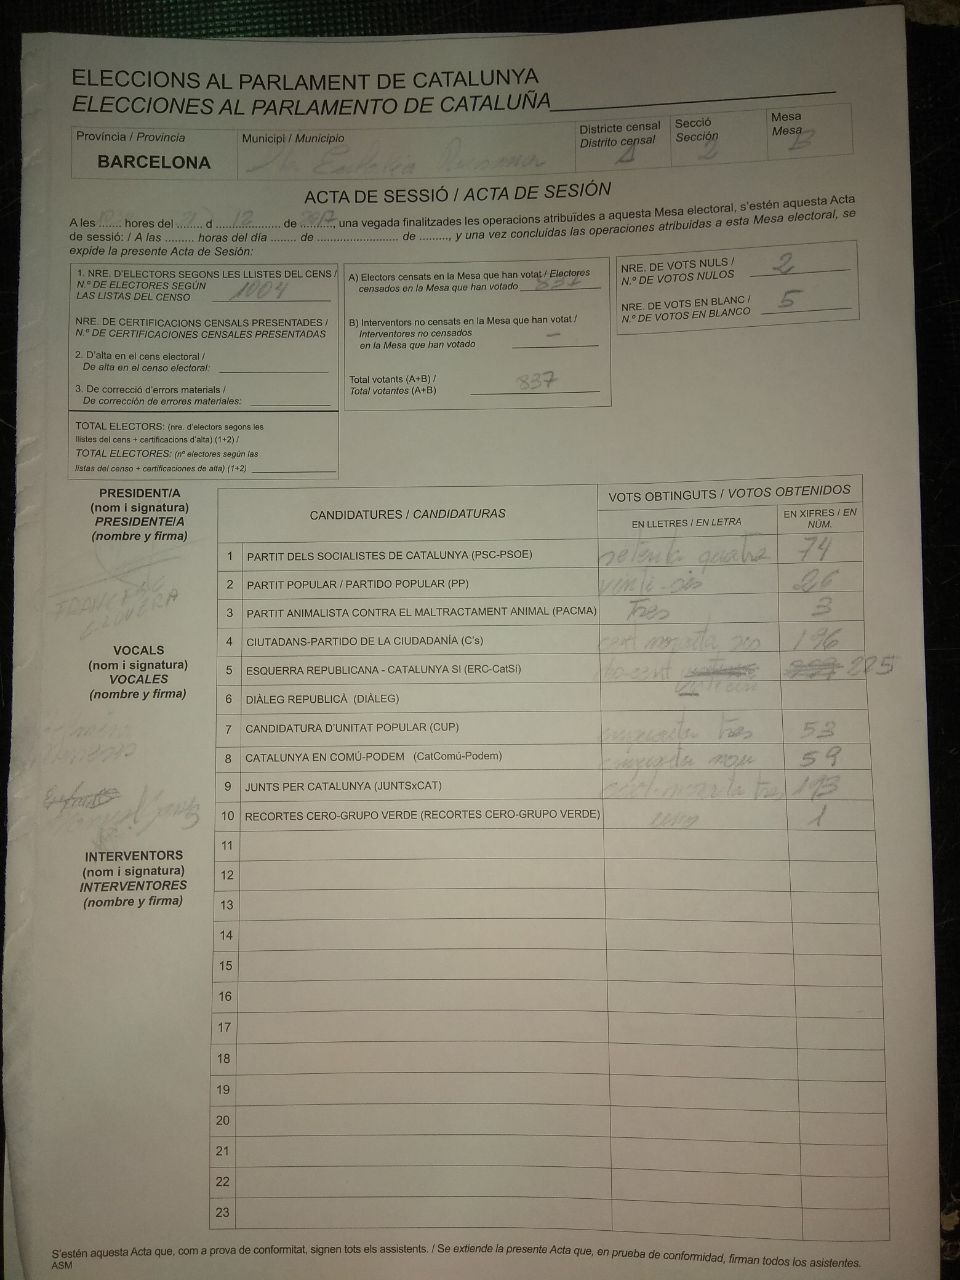 ELECCIONS AL PARLAMENT DE CATALUNYA
ELECCIONES AL PARLAMENTO DE CATALUÑA
Província / Provincia
BARCELONA
Municipi / Municipio
Districte censal
Distrito censal
1
Secció
Sección
2
Mesa
Mesa
B
ACTA DE SESSIÓ / ACTA DE SESIÓN
A les ...... hores del ....... d ... 12 ... de ... 2017, una vegada finalitzades les operacions atribuïdes a aquesta Mesa electoral, s'estén aquesta Acta
de sessió: / A las ......... horas del día ....... de ........................ de ........., y una vez concluidas las operaciones atribuidas a esta Mesa electoral, se
expide la presente Acta de Sesión:
1. NRE. D'ELECTORS SEGONS LES LLISTES DEL CENS /
N.º DE ELECTORES SEGÚN
LAS LISTAS DEL CENSO 1004
NRE. DE CERTIFICACIONS CENSALS PRESENTADES /
N.º DE CERTIFICACIONES CENSALES PRESENTADAS
2. D'alta en el cens electoral /
De alta en el censo electoral:
3. De correcció d'errors materials /
De corrección de errores materiales:
TOTAL ELECTORS: (nre. d'electors segons les
llistes del cens + certificacions d'alta) (1+2) /
TOTAL ELECTORES: (nº electores según las
listas del censo + certificaciones de alta) (1+2)
A) Electors censats en la Mesa que han votat / Electores
censados en la Mesa que han votado 837
B) Interventors no censats en la Mesa que han votat /
Interventores no censados
en la Mesa que han votado —
Total votants (A+B) /
Total votantes (A+B) 837
NRE. DE VOTS NULS /
N.º DE VOTOS NULOS 2
NRE. DE VOTS EN BLANC /
N.º DE VOTOS EN BLANCO 5
PRESIDENT/A
(nom i signatura)
PRESIDENTE/A
(nombre y firma)
VOCALS
(nom i signatura)
VOCALES
(nombre y firma)
INTERVENTORS
(nom i signatura)
INTERVENTORES
(nombre y firma)
CANDIDATURES / CANDIDATURAS
VOTS OBTINGUTS / VOTOS OBTENIDOS
EN LLETRES / EN LETRA
EN XIFRES / EN NÚM.
1 PARTIT DELS SOCIALISTES DE CATALUNYA (PSC-PSOE) setenta quatre 74
2 PARTIT POPULAR / PARTIDO POPULAR (PP) vinti-sis 26
3 PARTIT ANIMALISTA CONTRA EL MALTRACTAMENT ANIMAL (PACMA) Tres 3
4 CIUTADANS-PARTIDO DE LA CIUDADANÍA (C's) cent noranta sis 196
5 ESQUERRA REPUBLICANA - CATALUNYA SÍ (ERC-CatSí) 225
6 DIÀLEG REPUBLICÀ (DIÀLEG)
7 CANDIDATURA D'UNITAT POPULAR (CUP) cinquanta tres 53
8 CATALUNYA EN COMÚ-PODEM (CatComú-Podem) cinquanta nou 59
9 JUNTS PER CATALUNYA (JUNTSxCAT) cent-noranta tres 193
10 RECORTES CERO-GRUPO VERDE (RECORTES CERO-GRUPO VERDE) 1
11
12
13
14
15
16
17
18
19
20
21
22
23
S'estén aquesta Acta que, com a prova de conformitat, signen tots els assistents. / Se extiende la presente Acta que, en prueba de conformidad, firman todos los asistentes.
ASM